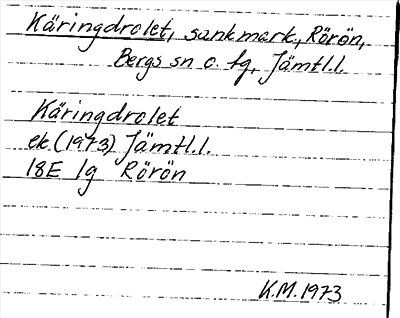 Käringdrolet, sankmark, Rörön,
Bergs sn o. tg, Jämtl.l.
Käringdrolet
ek (1973) Jämtl.l.
18E 1g Rörön
K.M. 1973